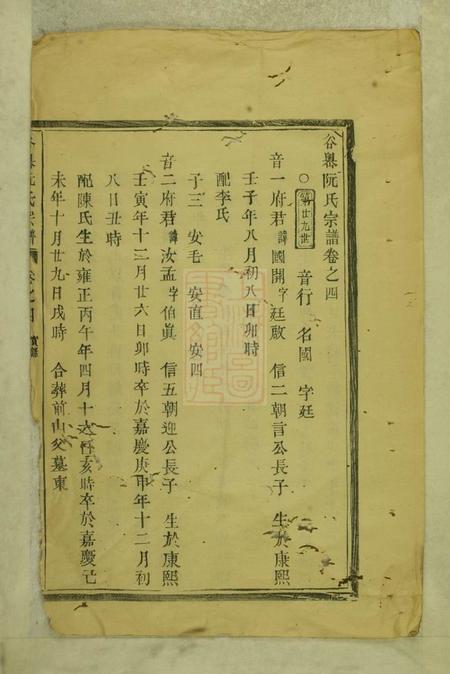 谷嶴阮氏宗譜卷之四
○第廿九世 音行 名國 字廷
音一府君諱國開字廷啟 信二朝言公長子 生於康熙
壬子年八月初八日卯時
配李氏
子三 安毛 安直 安四
音二府君諱汝孟字伯眞 信五朝迎公長子 生於康熙
壬寅年十二月廿六日卯時卒於嘉慶庚申年十二月初
八日丑時
配陳氏生於雍正丙午年四月十六日亥時卒於嘉慶己
未年十月廿九日戌時 合葬前山父墓東
谷嶴阮氏宗譜 卷之四